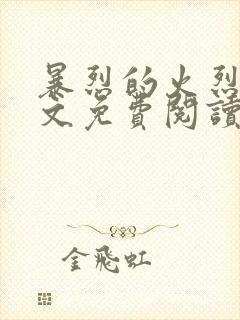 暴烈的火烈
文免費閱讀
金飛虹